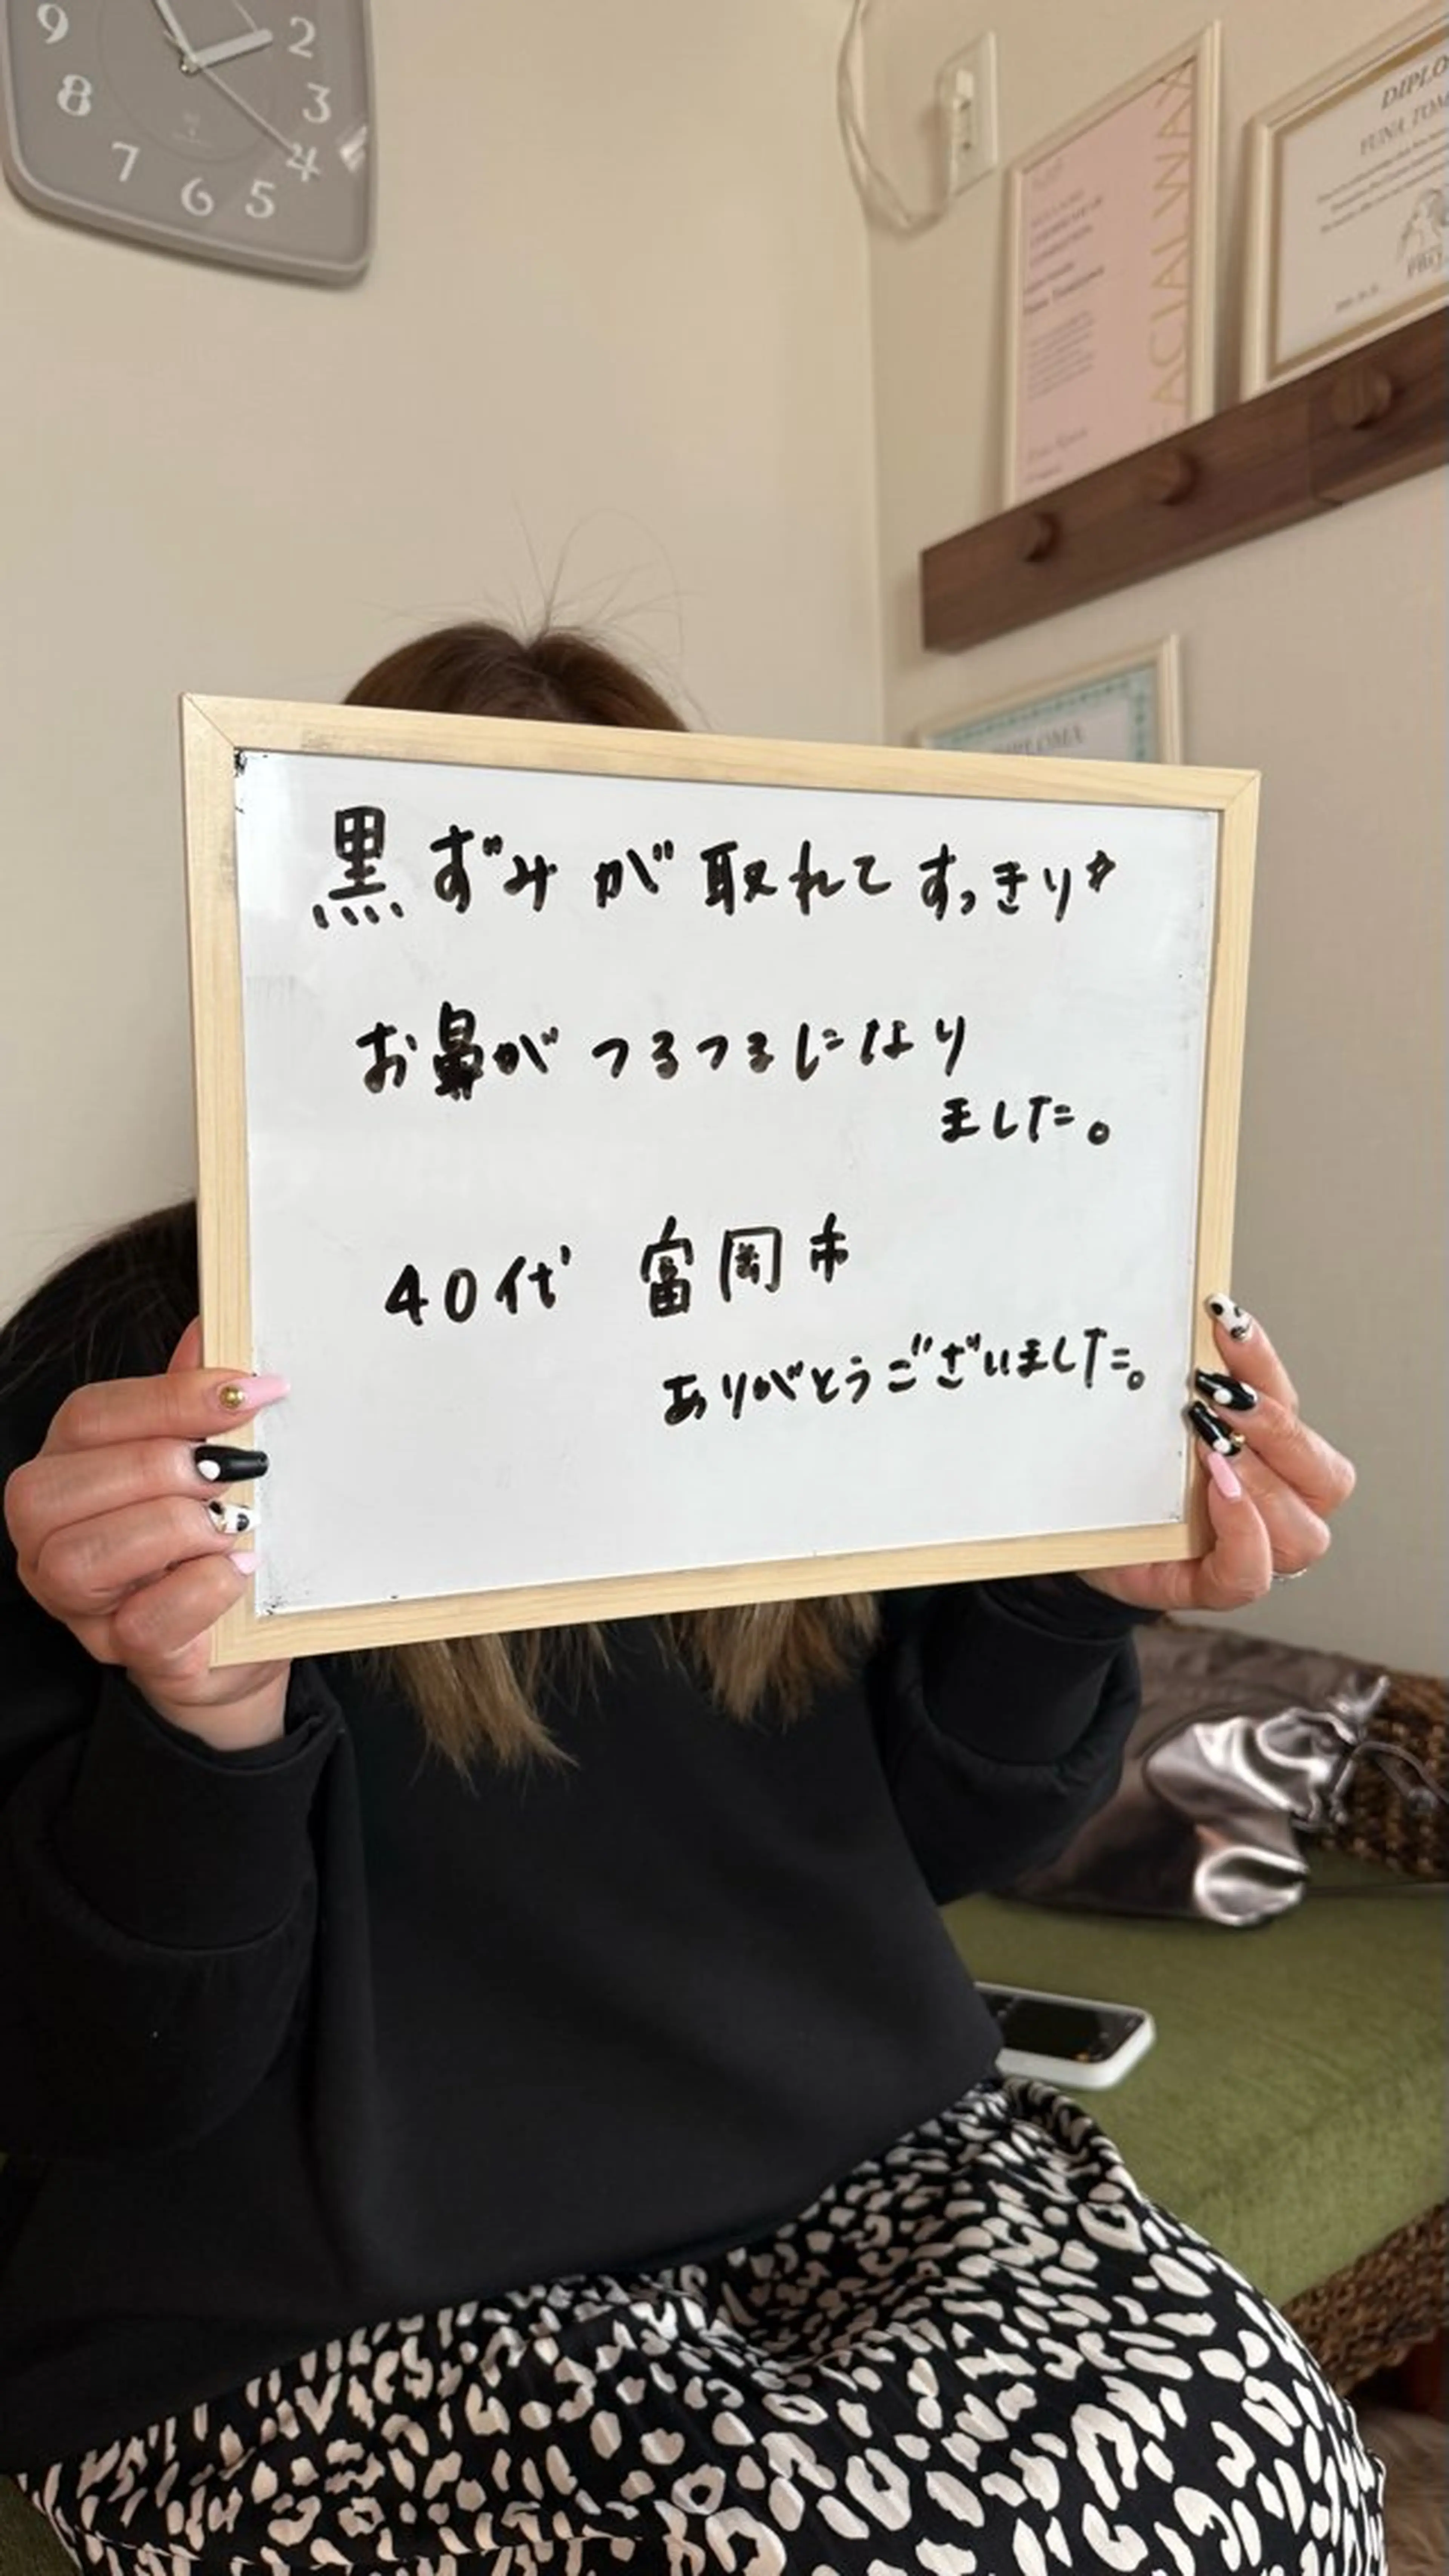 9
8
7
6
5
4
3
2
FACIALWAX
DIPLO
YUNA TOM
DIPLOMA
黒ずみが取れてすっきり☆
お鼻がつるつるになり
ました。
40代 富岡市
ありがとうございました。